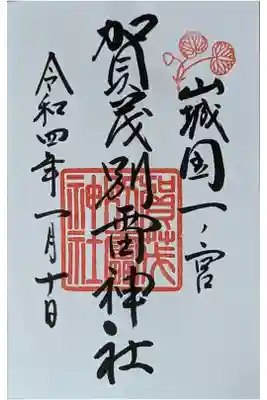 山城国一ノ宮
賀茂別雷神社
令和四年一月十日
賀茂別雷神社